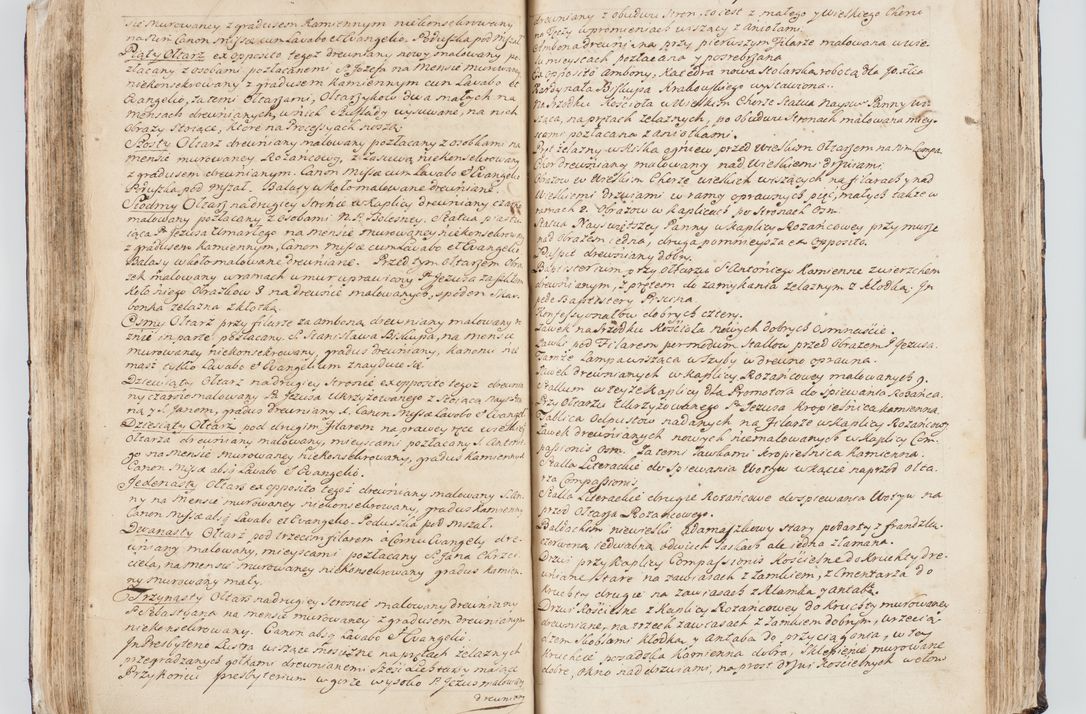 sie murowaney z gradusem kamiennym niekonsekrowany
na nim Canon Missæ cum Lavabo et Evangelio. Poduszka pod Mszał.
Piąty Ołtarz ex opposito tegoż drewniany nowy malowany po
złacany z osobami pozłacanemi S. Jozefa na Mensie murowaney
niekonsekrowany z gradusem kamiennym cum Lavabo et
Evangelio, za temi Ołtarzami, Ołtarzykow dwa małych na
mensach drewnianych, w nich szuflady wysuwane, na nich
Obrazy stoiące, ktore na Processyach noszą.
Szosty Ołtarz drewniany malowany pozłacany z osobkami na
mensie murowaney Rozańcowy, z zasuwą niekonsekrowany
z gradusem drewnianym. Canon Missæ cum Lavabo et Evangelio
Poduszka pod mszał. Balasy w koło malowane drewniane.
Siodmy Ołtarz na drugiey stronie w kaplicy drewniany czarno
malowany pozłacany z osobami N. P. Bolesney. Statua piastu
iąca P. Jezusa umarłego na mensie murowaney niekonsekrowany
z gradusem kamiennym, Canon missæ cum Lavabo et Evangelio
Balasy w koło malowane drewniane. Przed tym ołtarzem Obra
zek malowany w ramach w mur wprawiany P. Jezusa za szkłem
koło niego Obrazkow 8 na drewnie malowanych, spodem skar
bonka żelazna z kłotką.
Osmy Ołtarz przy filarze za amboną drewniany malowany
znie in parte pozłacany S. Stanisława Biskupa, na mensie
murowaney niekonsekrowany, gradus drewniany, kanonu nie
masz tylko Lavabo et Evangelium znayduie się
Dziewiąty Ołtarz na drugiey stronie ex opposito tegoż drewnia
ny czarno malowany P. Jezusa ukrzyżowanego z stoiącą Nayś: Pa
ną y S. Janem, gradus drewniany, Canon Missæ Lavabo et Evangel:
Dziesiąty Ołtarz pod drugim filarem na prawey ręce wielkiego
Ołtarza drewniany malowany, mieyscami pozłacany S. Antonie
go na mensie murowaney niekonsekrowany, gradus kamienny
Canon Missæ absq Lavabo et Evangelio.
Jedenasty Ołtarz ex opposito tegoż drewniany malowany S. An
ny na mensie murowaney niekonsekrowany, gradus kamienny
Canon Missæ absq Lavabo et Evangelio. Poduszka pod mszał.
Dwanasty Ołtarz pod trzecim filarem a Cornu Evangely dre
wniany malowany, mieyscami pozłacany S. Jana Chrzci
ciela, na mensie murowaney niekonsekrowany gradus kamien
ny murowany mały.
Trzynasty Ołtarz na drugiey stronie malowany drewniany
S. Sebastyana na mensie murowaney z gradusem drewnianym
niekonsekrowany. Canon absq Lavabo et Evangelio.
In Presbyterio Lustra wiszące mosiężne na prętach żelaznych
przegradzanych gałkami drewnianemi
Przy końcu presbyterium w gorze wysoko P. Jezus malowany
drewniany
drewniany z obudwu stron, to iest z małego y wielkiego Choru
na tęczy w promieniach wiszący z Aniołami.
Ambona drewniana przy pierwszym filarze malowana w wie
lu mieyscach pozłacana y posrebrzana
Ex opposito ambony, katedra nowa stolarską robotą dla Jo. Xcia
Kardynała Biskupa Krakowskiego wystawiona.
Na srzodku kościoła w Wielkim Chorze Statua Nayśw: Panny wi
sząca, na prętach żelaznych, po obudwu stronach malowana miey
scami pozłacana z aniołkami.
Pręt żelazny w kilka ogniew przed wielkim Ołtarzem na nim Lampa.
Chor drewniany malowany nad wielkiemi drzwiami
Obrazow w Wielkim Chorze wielkich wiszących na filarach y nad
Wielkiemi drzwiami w ramy oprawnych pięć, małych także w
ramach 2. Obrazow w kaplicach po stronach Osm.
Statua Nayświętszey Panny w kaplicy Rozańcowey przy murze
nad obrazem iedna, druga pomnieysza ex opposito.
Pulpit drewniany dobry.
Baptisterium przy ołtarzu S. Antoniego kamienne z wierzchem
drewnianym, z prętem do zamykania żelaznym z kłodką. In
pede Baptistery Piscina.
Konfessyonałow dobrych cztery.
Ławek na srzodku kościoła nowych dobrych ośmnaście.
Ławki pod filarem per modum stallow przed Obrazem P. Jezusa.
Tamże Lampa wisząca w szyby w drewno oprawna.
Ławek drewnianych w kaplicy Rozańcowey malowanych 9.
Stallum w teyże kaplicy dla Promotora do spiewania Rożańca.
Przy Ołtarzu Ukrzyżowanego P. Jezusa kropielnica kamienna.
Tablica Odpustow nadanych na filarze w kaplicy Rozańcowey
Ławek drewnianych nowych niemalowanych w kaplicy Com
passionis Osm. Za temi Ławkami kropielnica kamienna.
Stalla Literackie do spiewania Wotyw w kącie naprzod ołta
rza Compassionis
Stalla Literackie drugie Rozańcowe do spiewania Wotyw na
przod Ołtarza Rozańcowego.
Baldachim niewielki Adamaszkowy stary podarty z frandzlą
czerwoną iedwabną o dwuch laskach ale iedna złamana.
Drzwi przy Kaplicy Compassionis kościelne do kruchty dre
wniane stare na zawiasach z zamkiem, z Cmentarza do
kruchty drugie na zawiasach z klamką y antabą
Drzwi kościelne z kaplicy Rozańcowey do kruchty murowaney
drewniane, na trzech zawiasach z zamkiem dobrym, wrzeciąd
zem skoblami kłodka, y antaba do przyciągania, w tey
kruchcie posadzka kamienna dobra, Sklepienie murowane
dobre, okno nad drzwiami, na prost drzwi kościelnych w ołow